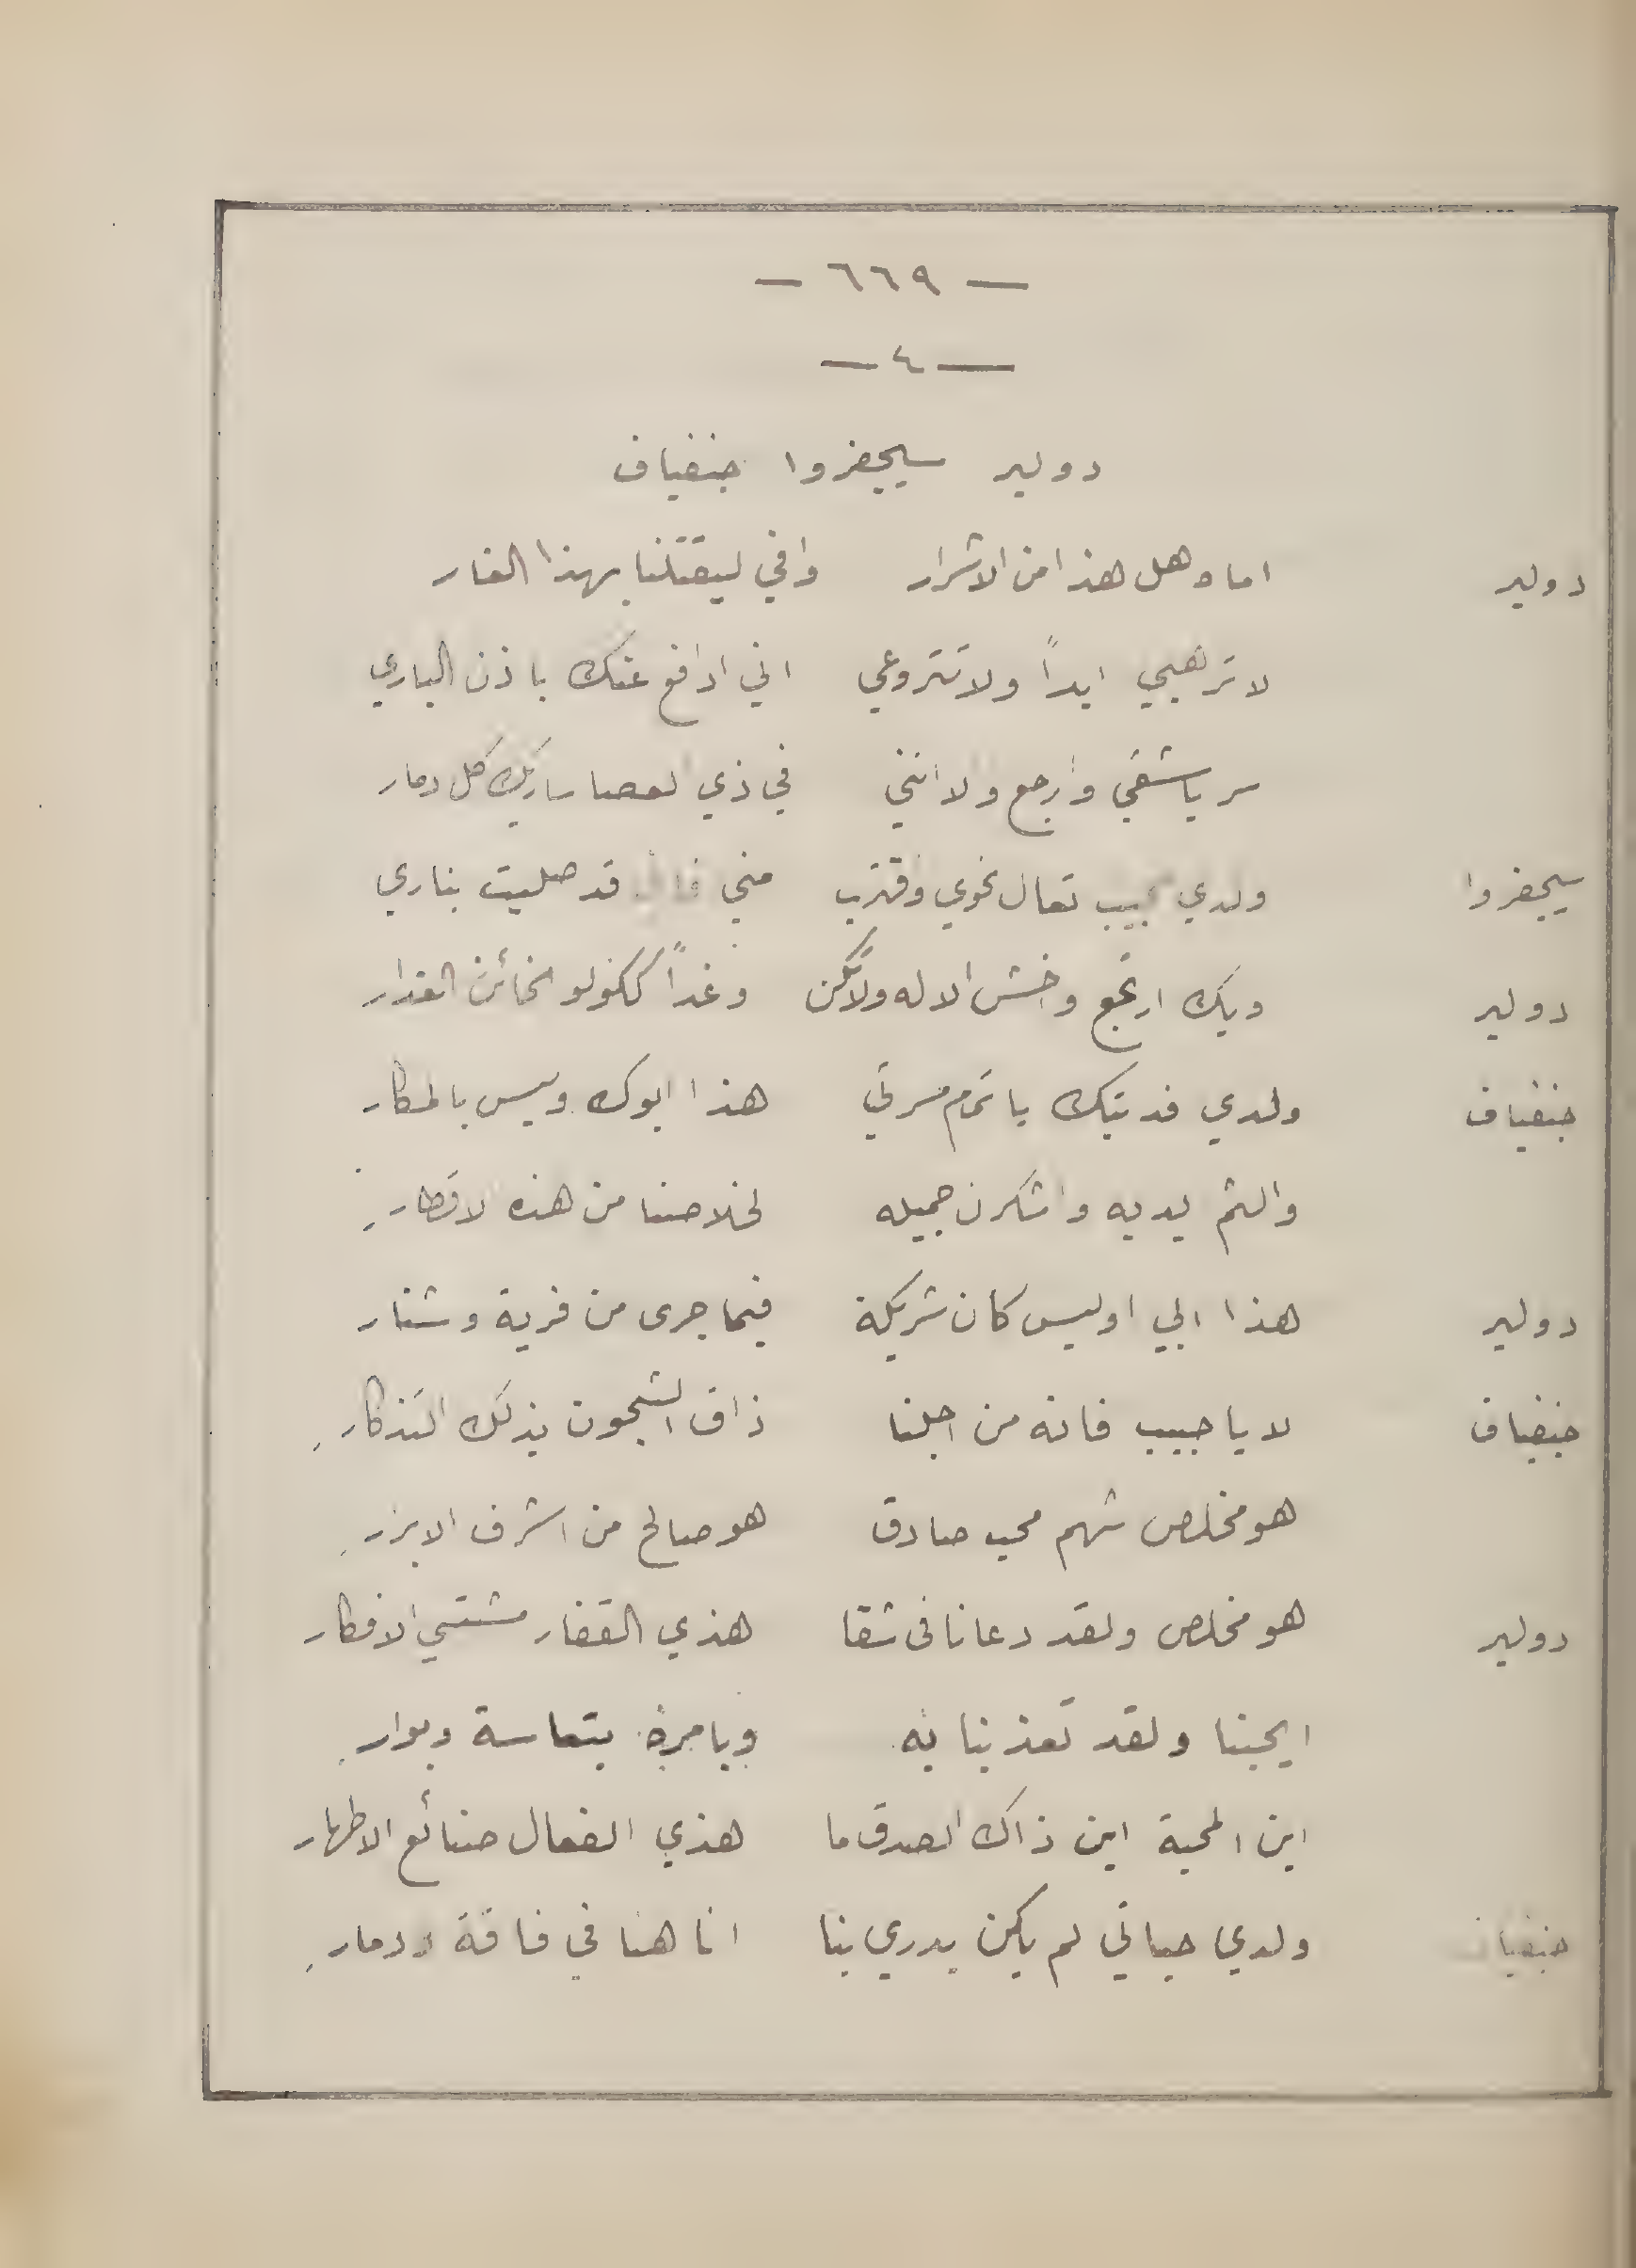 — ٦٦٩ —
— ٤ —
دولير سيجفروا جنفياف
دولير اماه هل هذا من الاشرار وافي ليقتلنا بهذا الغار
لا ترهبي ابداً ولا تتروعي اني ادافع عنك باذن الباري
سر يا شقي وارجع ولا انثني في ذي العصا ساريك كل دمار
سيجفروا ولدي حبيب تعال نحوي وقترب مني قد صليت بناري
دولير ويك ارتجع واخش الاله ولا تكن وغداً ككولو الخائن الغدار
جنفياف ولدي فديتك يا تمام مسرتي هذا ابوك وليس بالمكار
والثم يديه واشكرن جميله لخلاصنا من هذه لاقطار
دولير هذا ابي اوليس كان شريكة فيما جرى من فرية وشنار
جنفياف لا يا حبيب فانه من اجلنا ذاق الشجون بذلك التذكار
هو مخلص شهم محب صادق هو صالح من اشرف الابرر
دولير هو مخلص ولقد دعانا في شقا هذي القفار مشتتي الافكار
ايحبنا ولقد تعذبنا به وبامره بتعاسة وبوار
اين المحبة اين ذاك الصدق ما هذي الفعال صنائع الاطهار
جنفياف ولدي حياتي لم يكن يدري بنا انا هنا في فاقة ودمار